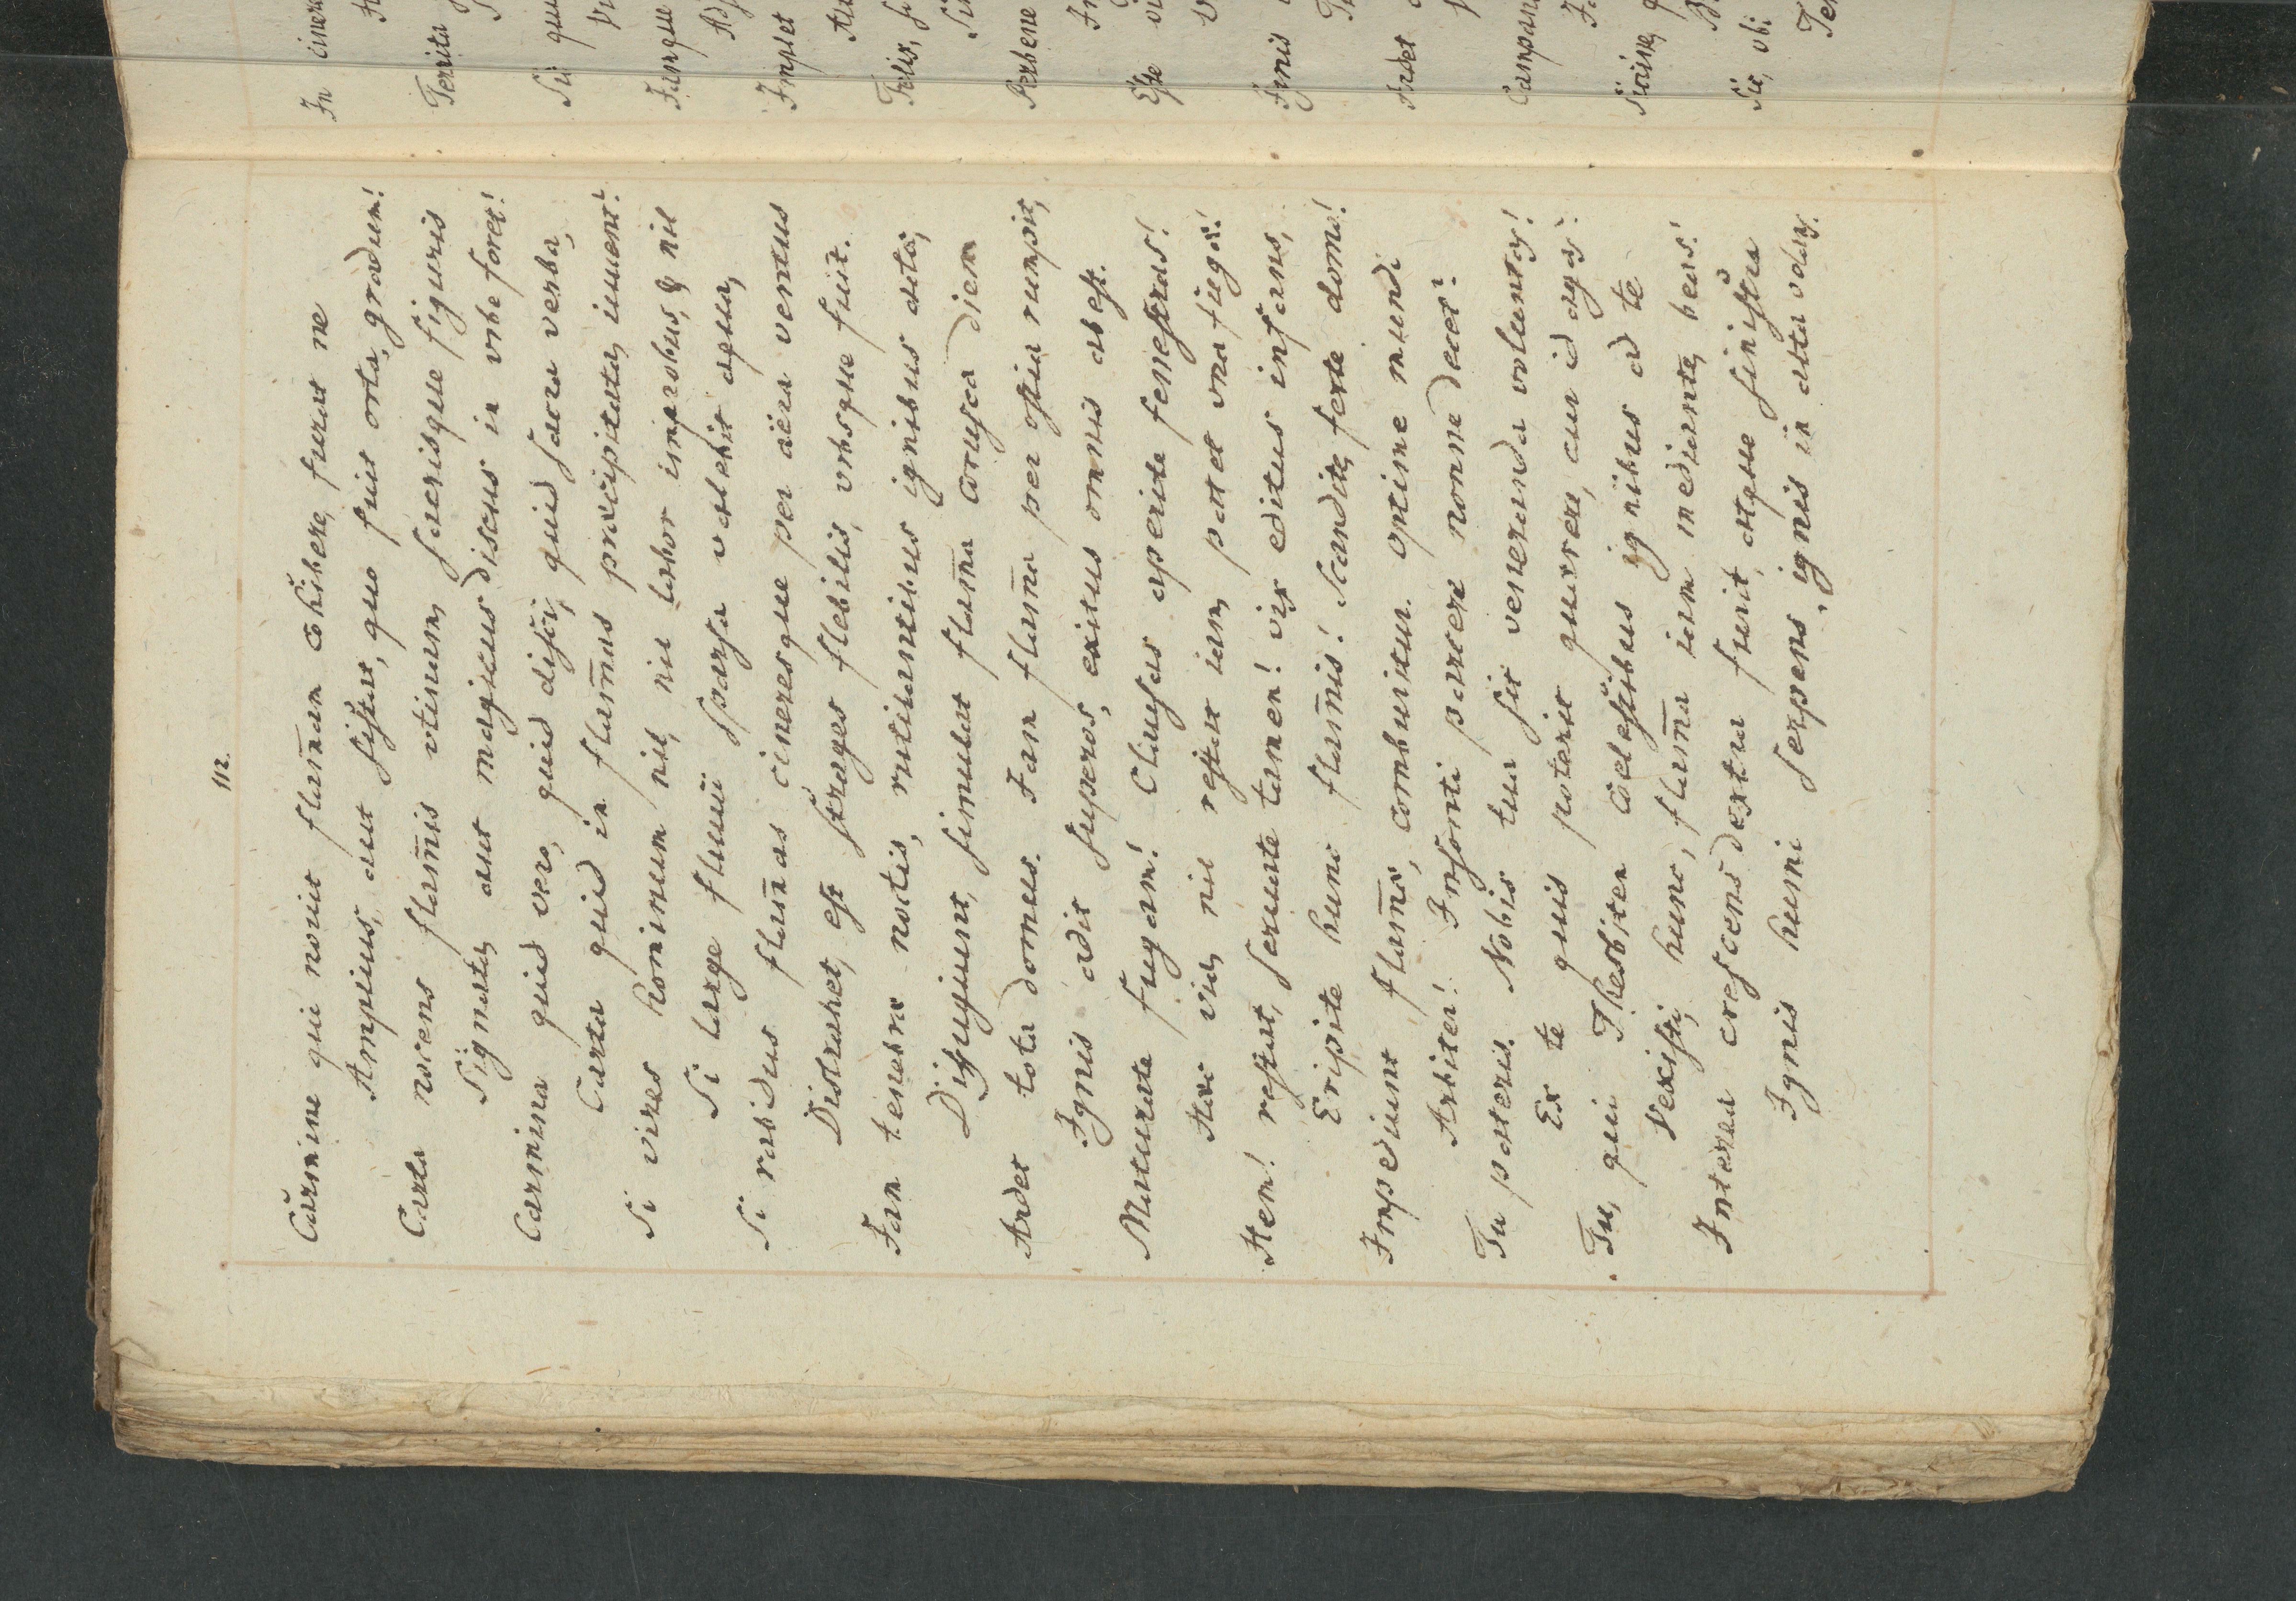 112.
Carmine qui nouit flam̄am cohibere, furat ne
Ampliùs, aut sistat, quo fuit orta, gradum!
Carta nocens flam̄is vtinam, sacrisque figuris
Signata, aut magicus discus in vrbe foret!
Carmina quid vero, quid disci, quid sacra verba,
Carta quid in flam̄as præcipitata, iuuent?
Si vires hominum nil, nil labor improbus, & nil
Si large fluuii sparsa valebit aqua,
Si rabidus flam̄as cineresque per aëra ventus
Distrahet, est strages flebilis, vrbsque fuit.
Jam tenebræ noctis, rutilantibus ignibus acta,
Diffugiunt, simulat flam̄a corusca diem
Ardet tota domus. Jam flam̄a per ostia rumpit,
Ignis adit superos, exitus omnis abest.
Maturate fugam! Clausas aperite fenestras!
Hac via, nil restat iam, patet vna fugæ!
Hem! restat, seruate tamen! vix editus infans,
Eripite hunc flam̄is! Scandite, ferte domo!
Impediunt flam̄æ, comburitur. optime mundi
Arbiter! Insonti parcere nonne decet?
Tu poteris. Nobis tua sit veneranda voluntas!
Ex te quis poterit quærere, cur id agas?
Tu, qui Thesbiten cœlestibus ignibus ad te
Vexisti, hunc, flam̄a iam mediante, beas!
Interea crescens dextra furit, atque sinistra
Ignis humi serpens, ignis in alta volans.
In cinere
Territa
Sic
Jamque
Implet
Talis,
Ignis
Ardet
Sic, vbi